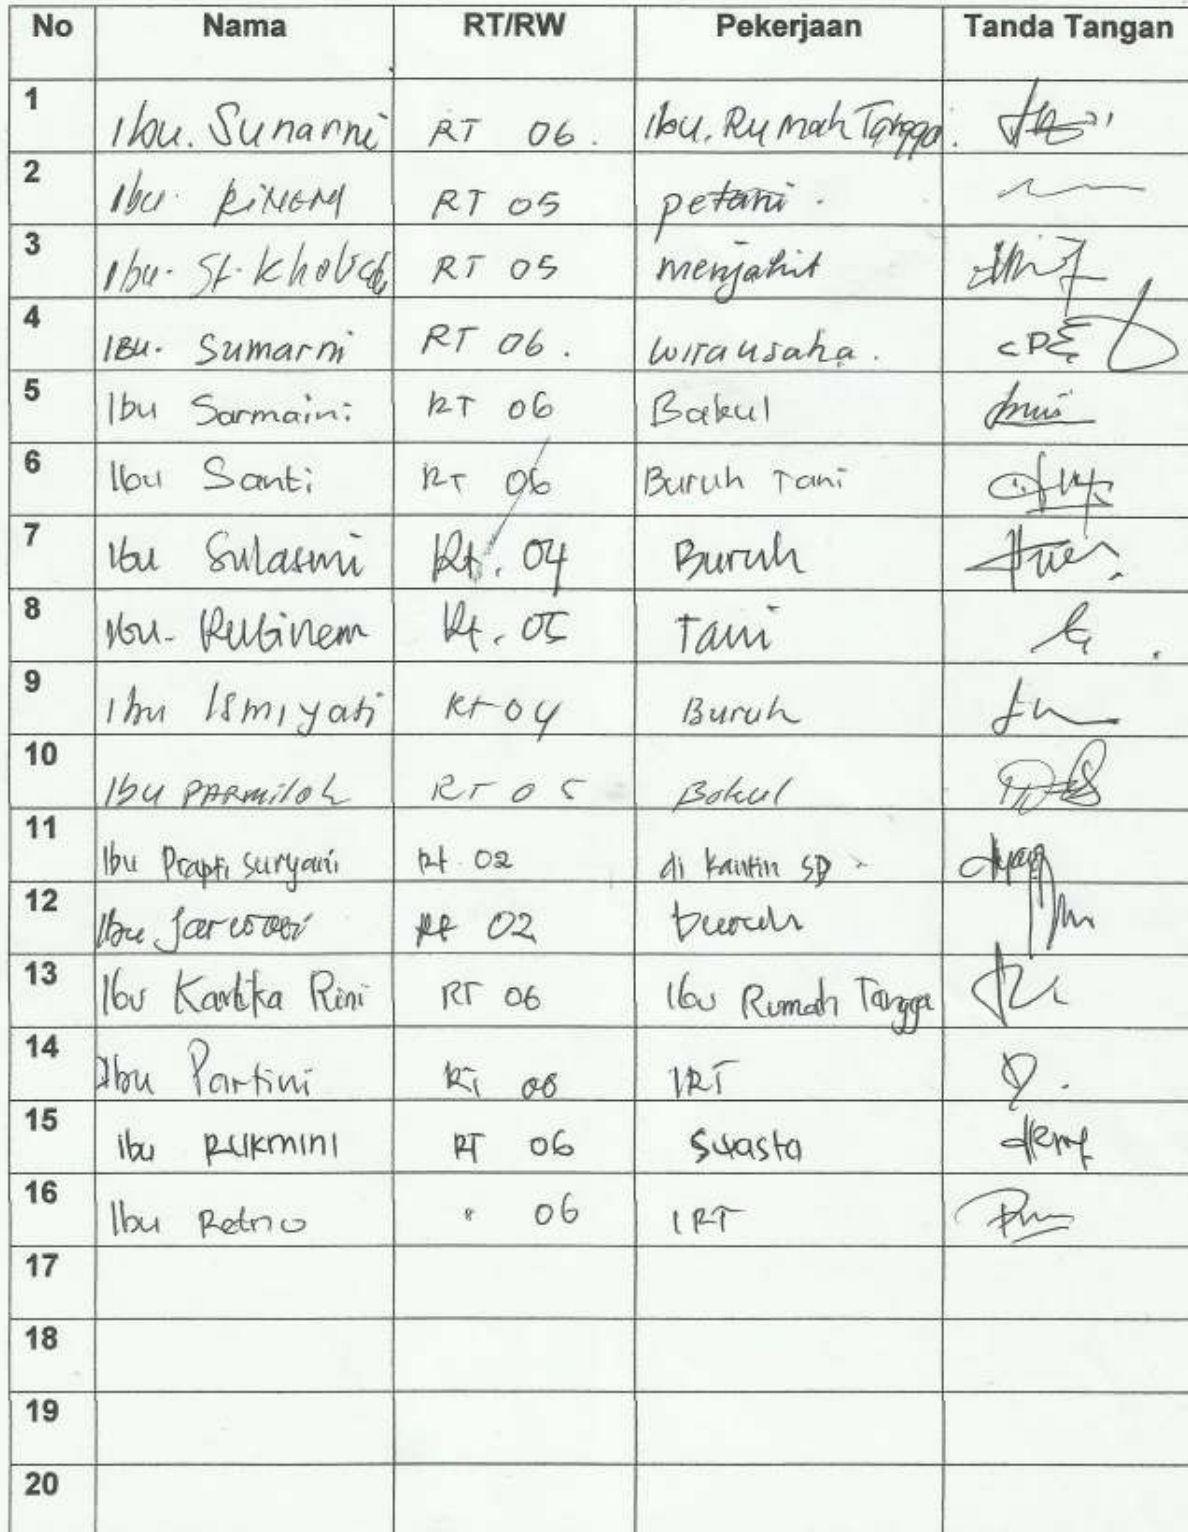 No Nama RT/RW Pekerjaan Tanda Tangan
1 Ibu. Sunarni RT 06. Ibu. Rumah Tangga.
2 Ibu. RiNEM RT 05 petani.
3 Ibu. St. RT 05 menjahit
4 IBU. Sumarni RT 06. wirausaha.
5 Ibu Sarmaini RT 06 Bakul
6 Ibu Santi RT 06 Buruh Tani
7 Ibu Sulasmi Rt. 04 Buruh
8 Ibu. Rubinem Rt. 05 Tani
9 Ibu Ismiyati Rt 04 Buruh
10 Ibu PARmilah RT 05 Bakul
11 Ibu Prapti Suryani Rt. 02 di kantin SD
12 Ibu Rt 02 buruh
13 Ibu Kartika Rini RT 06 Ibu Rumah Tangga
14 Ibu Partini RT 06 IRT
15 ibu RUKMINI RT 06 Swasta
16 Ibu Retno " 06 IRT
17
18
19
20